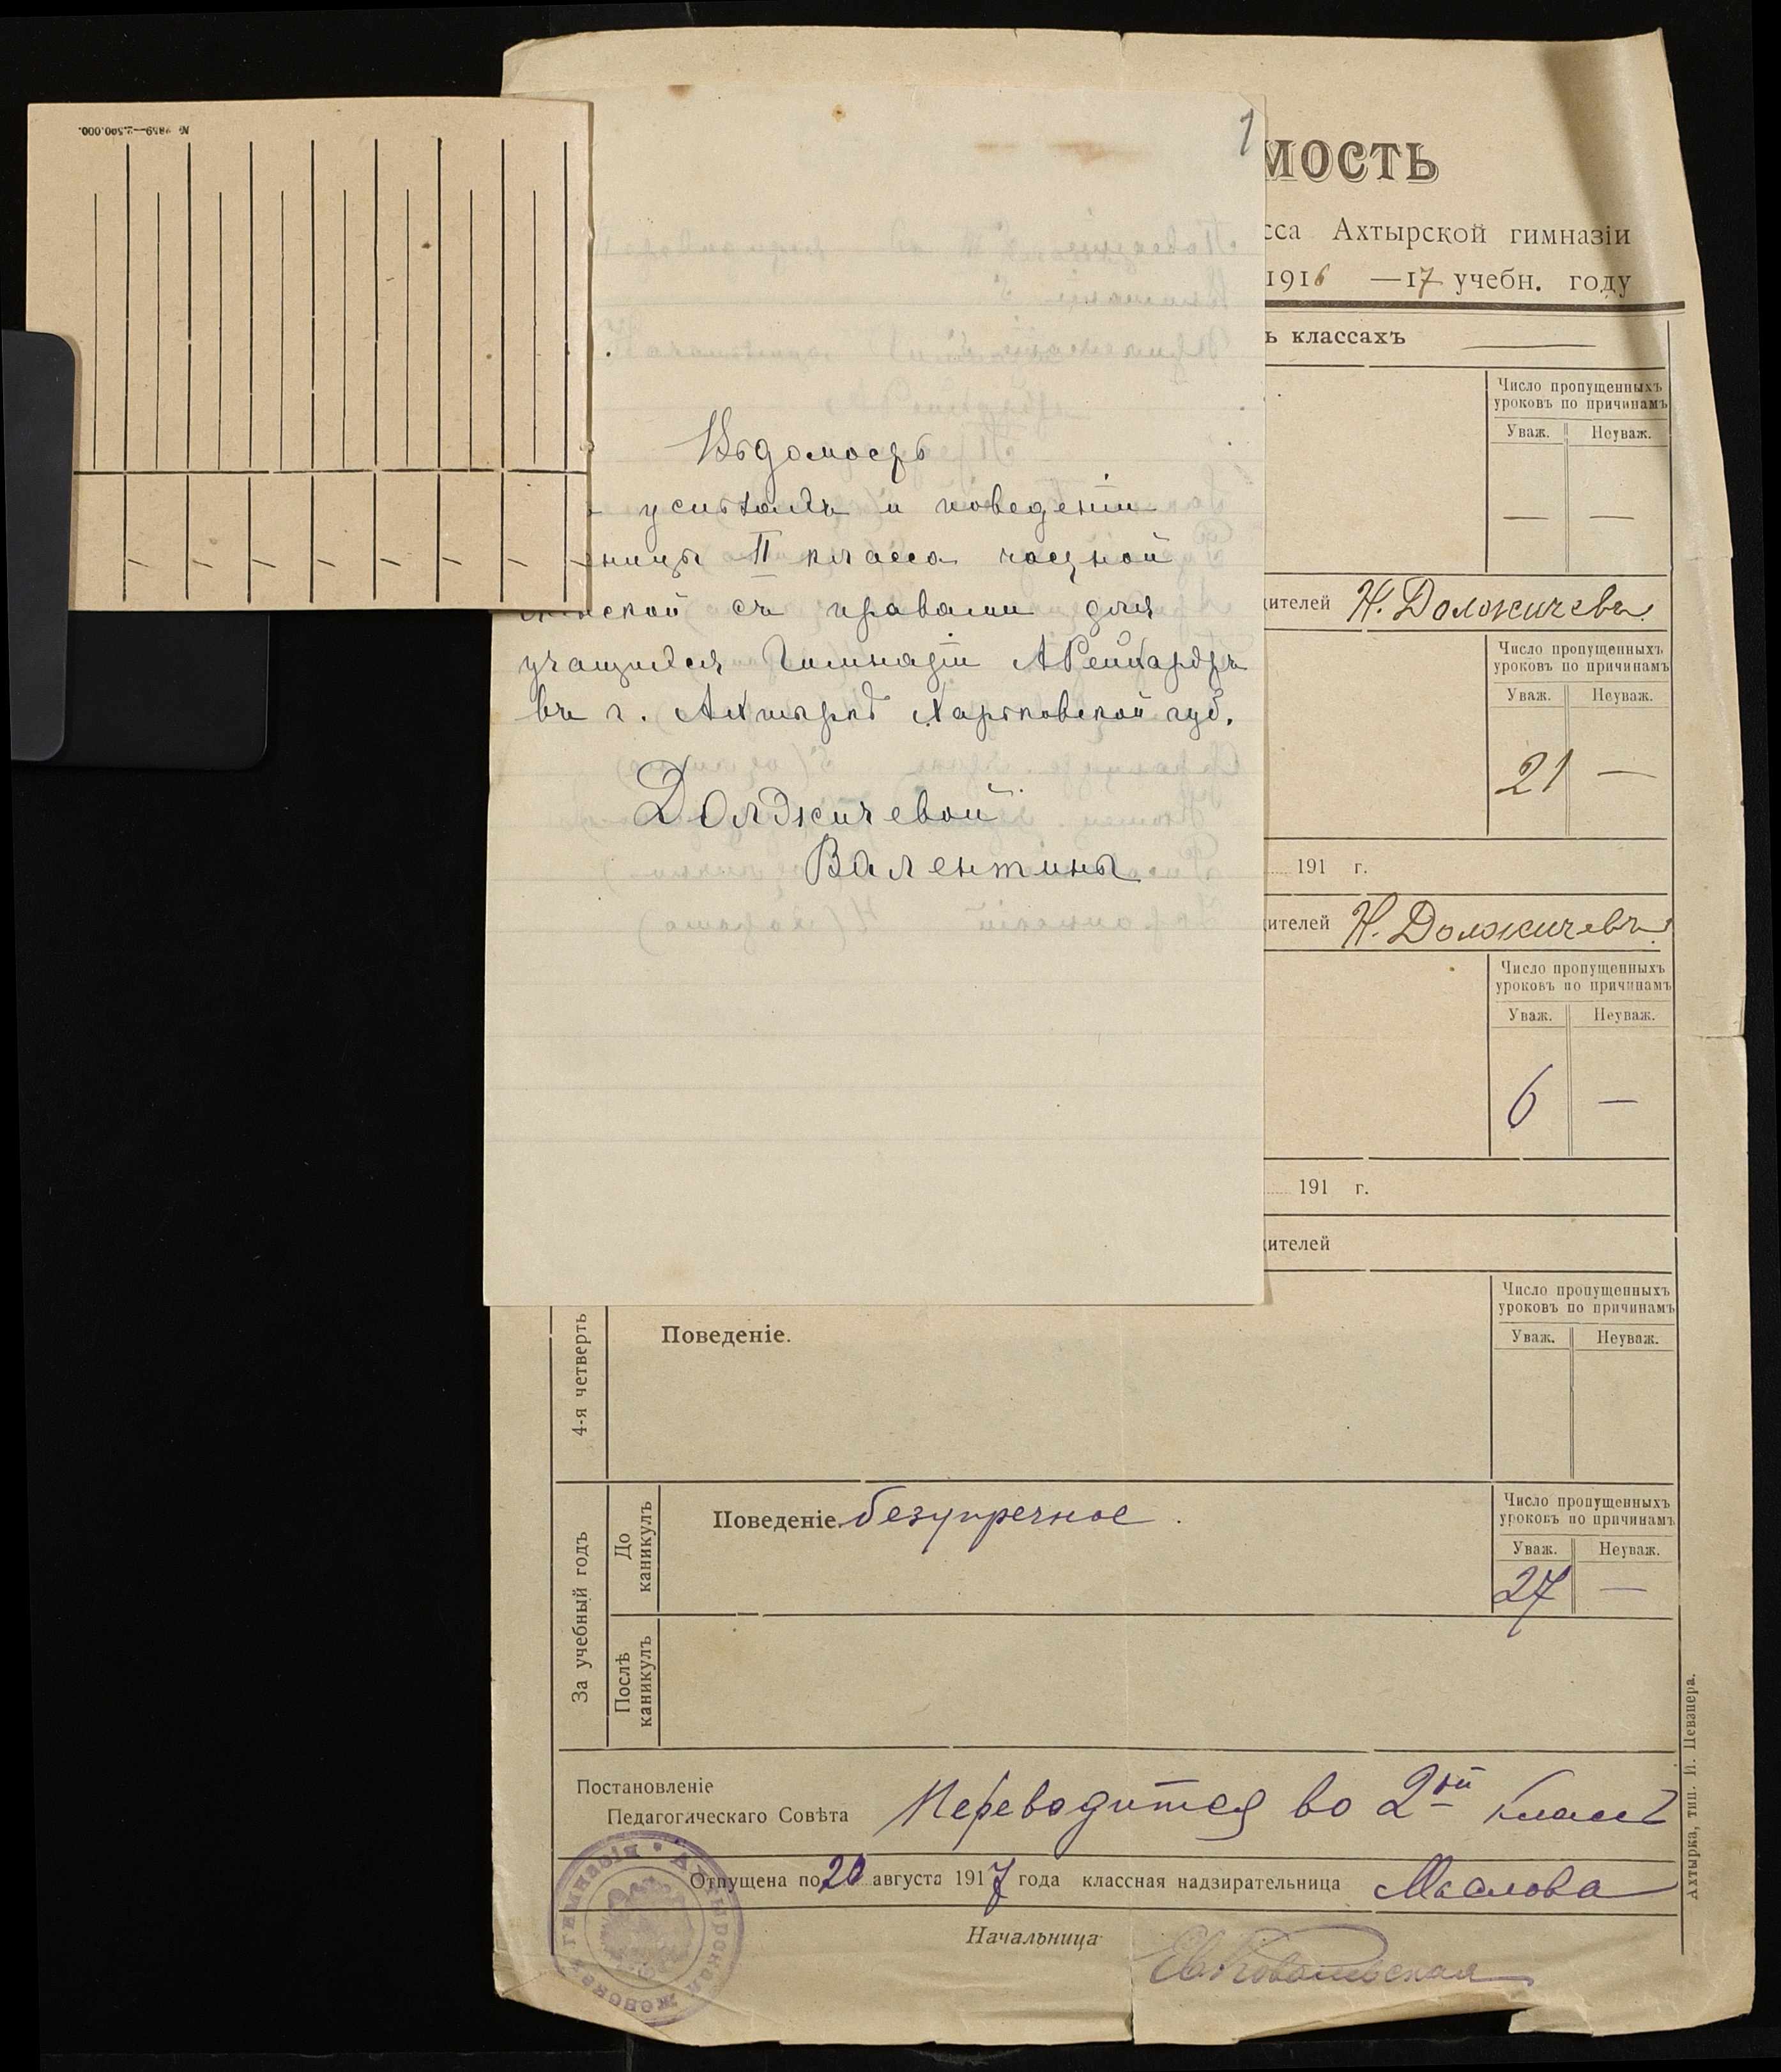 № 9859—2.500.000.
1
Вѣдомость
успѣхахъ и поведеніи
ницы II класса частной
женской съ правами для
учащихся Гимназіи А Рейнгардтъ
въ г. Ахтыркѣ Харьковской губ.
Должичевой
Валентины
МОСТЬ
сса Ахтырской гимназіи
1916 —17 учебн. году
ъ классахъ
Число пропущенныхъ
уроковъ по причинамъ
Уваж. Неуваж.
— —
ителей Н. Должичевъ
Число пропущенныхъ
уроковъ по причинамъ
Уваж. Неуваж.
21 —
191 г.
ителей Н. Должичевъ
Число пропущенныхъ
уроковъ по причинамъ
Уваж. Неуваж.
6 —
191 г.
ителей
4-я четверть
Поведеніе.
Число пропущенныхъ
уроковъ по причинамъ
Уваж. Неуваж.
За учебный годъ
До
каникулъ
Поведеніе. безупречное.
Число пропущенныхъ
уроковъ по причинамъ
Уваж. Неуваж.
27 —
Послѣ
каникулъ
Постановленіе
Педагогическаго Совѣта Переводится во 2ой классъ
Отпущена по 20 августа 1917 года классная надзирательница Маслова
Начальница
Ахтырка, тип. И. Певзнера.
Ахтырская женская гимназія